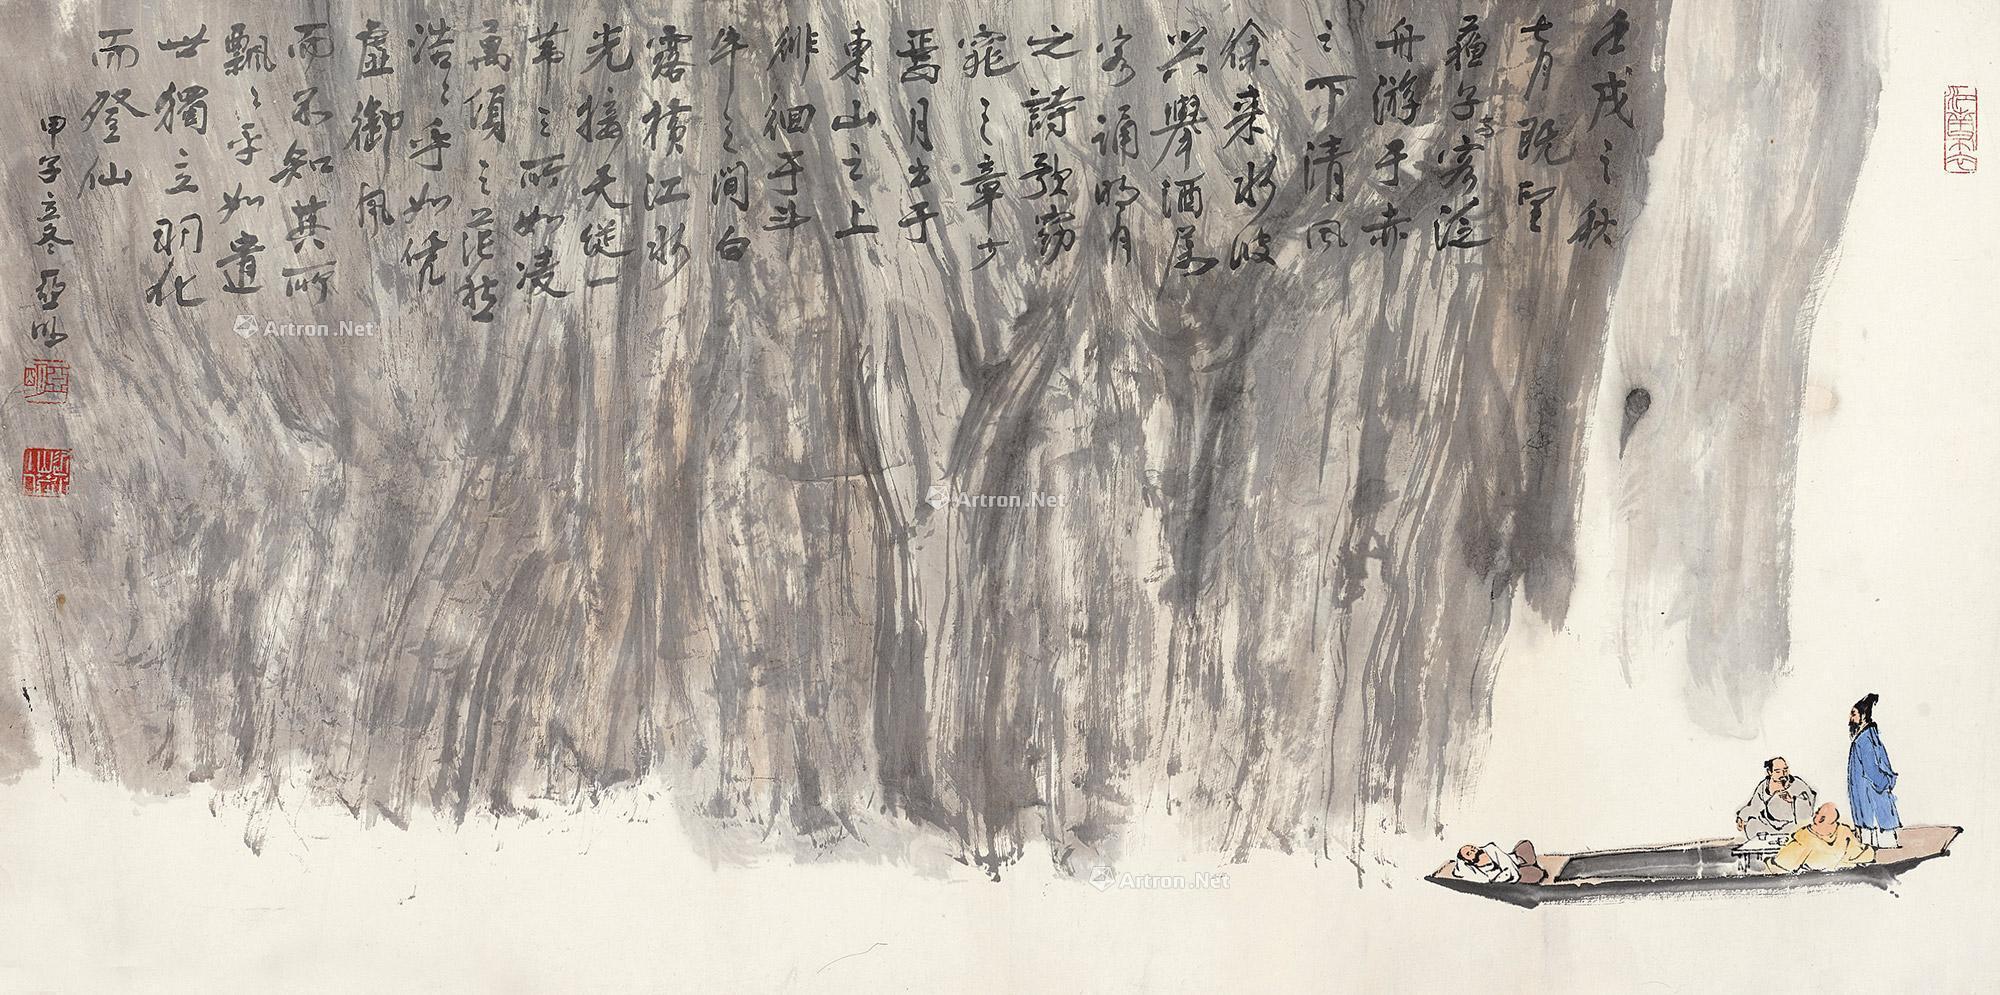 壬戌之秋
七月既望
蘇子与客泛
舟游于赤
之下清風
徐来水波
興舉酒属
客誦明月
之詩歌窈
窕之章少
焉月出于
東山之上
徘徊于斗
牛之間白
露横江水
光接天縱一
葦之所如凌
萬頃之茫然
浩〻乎如凭
虚御風
而不知其所
飄〻乎如遺
世獨立羽化
而登仙
甲子立冬亞明
亞明
Artron.Net
Artron.Net
Artron.Net